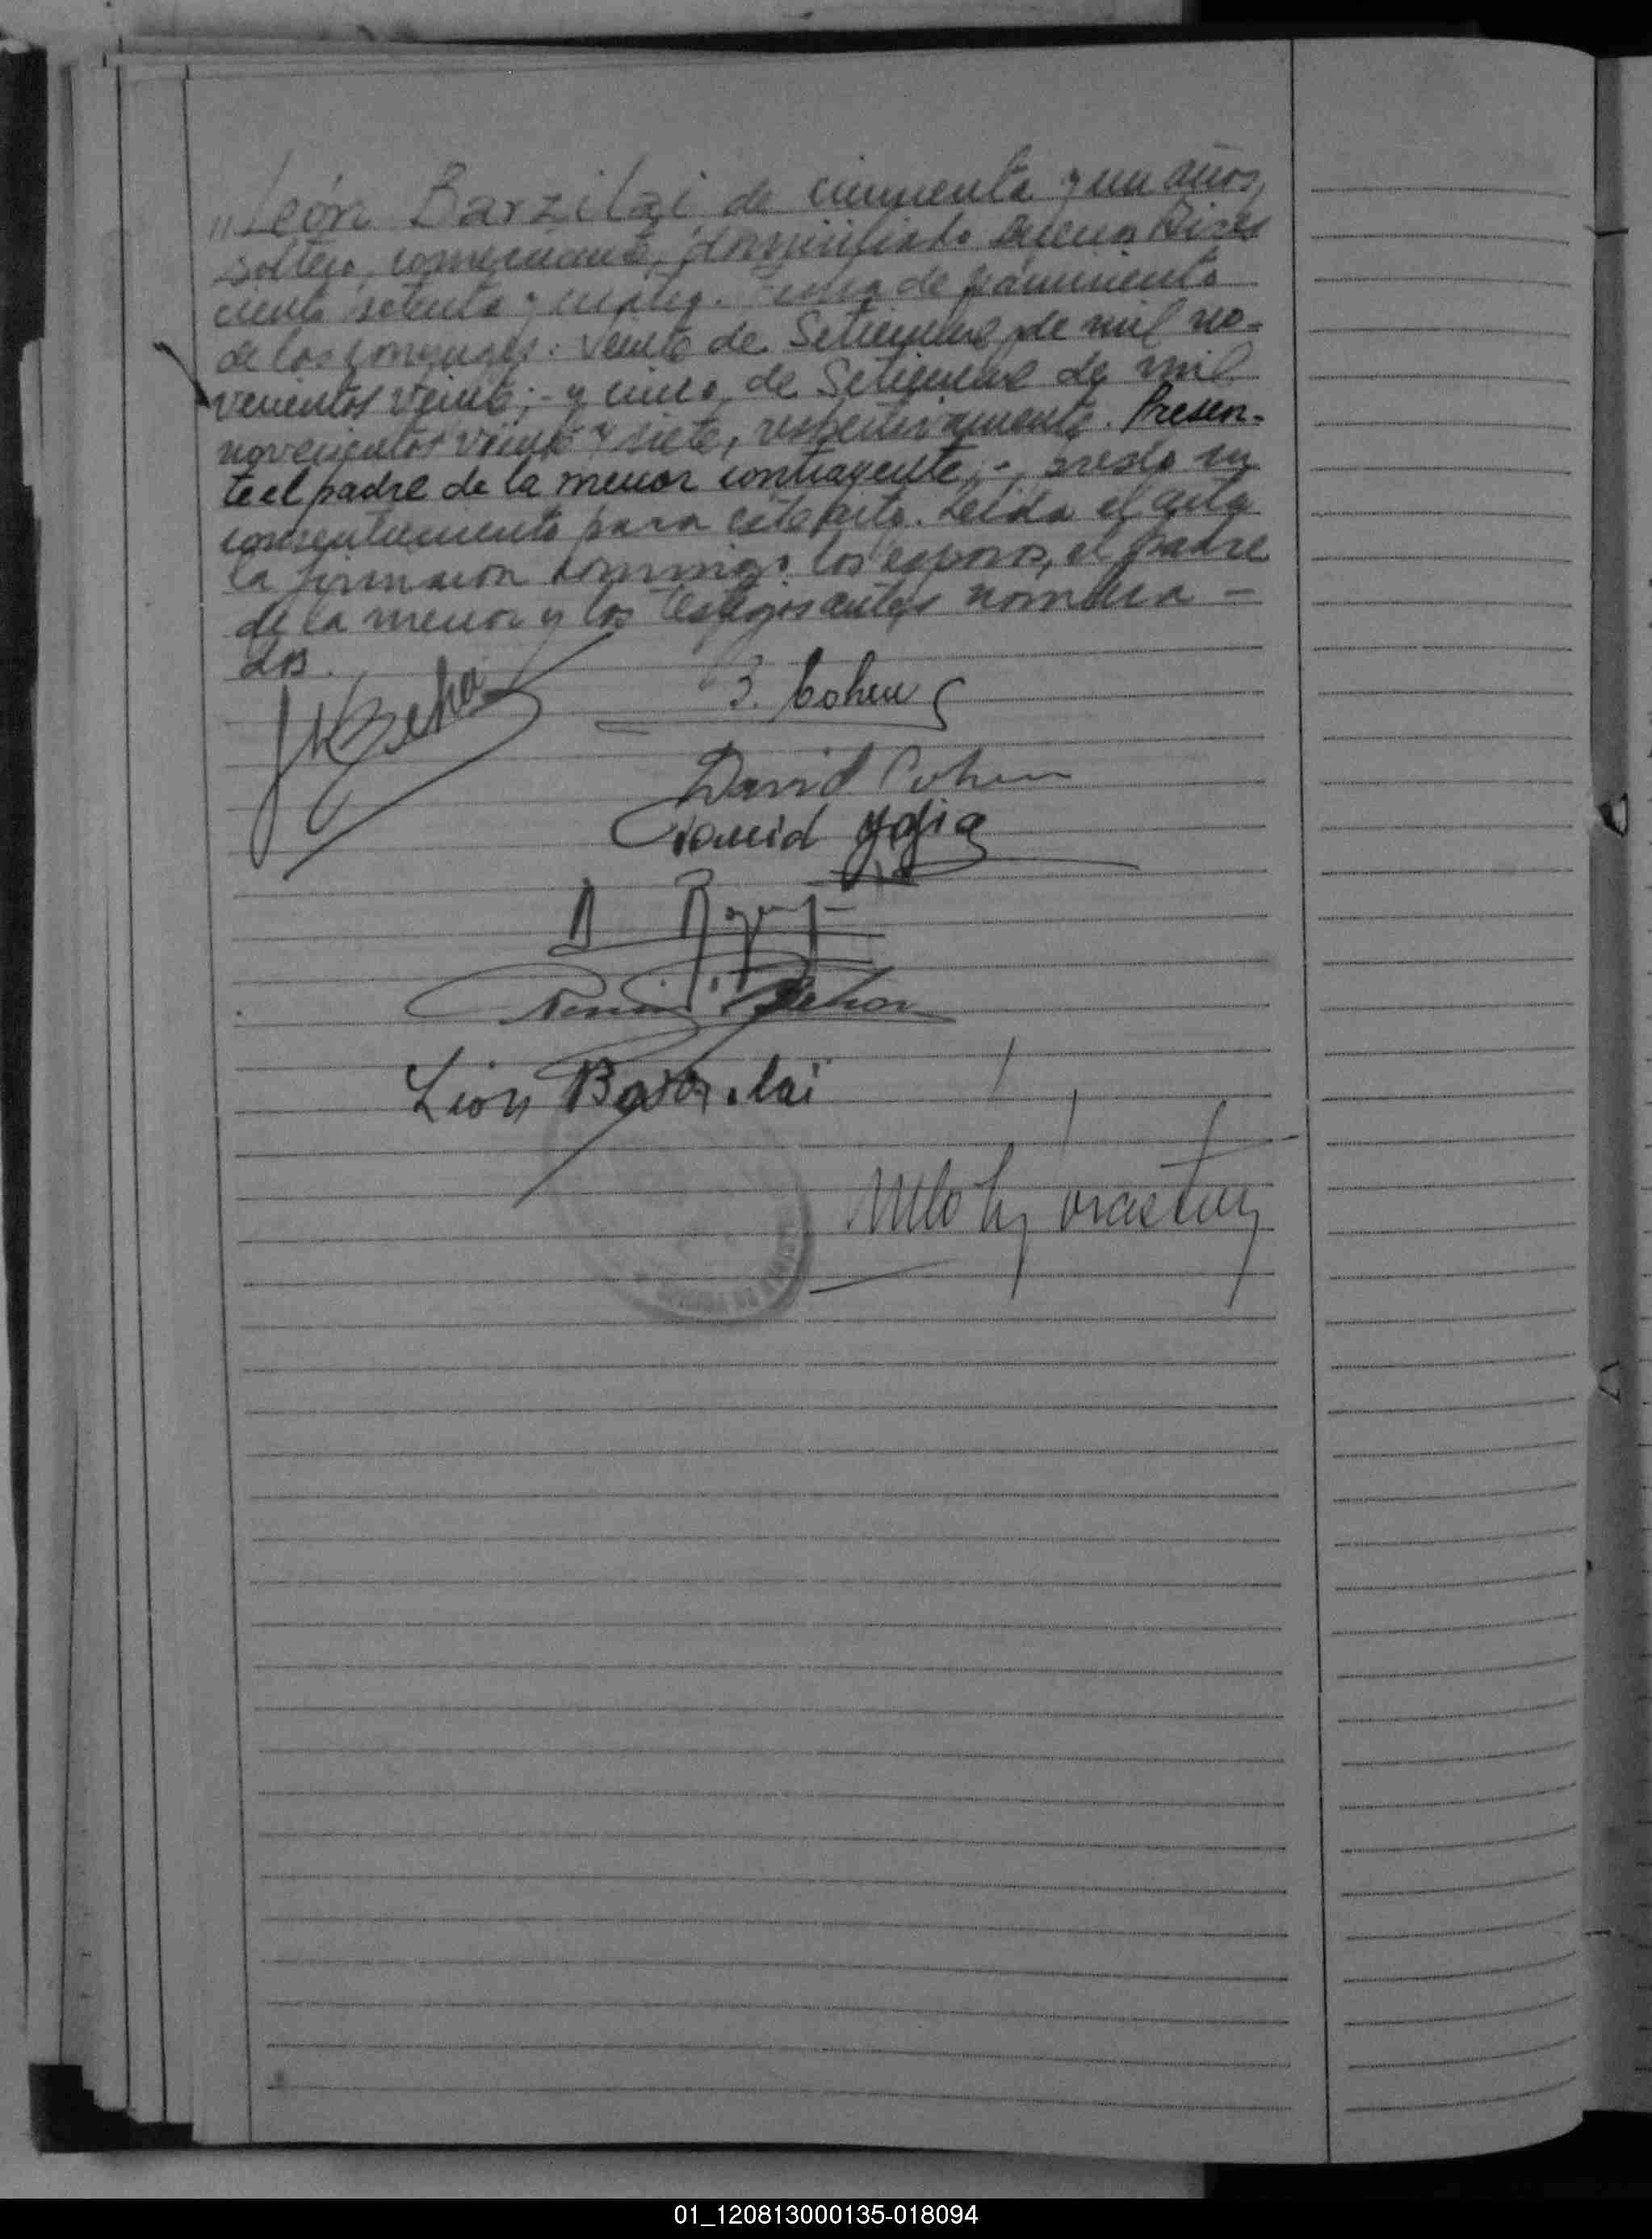 "León Barzilai de cincuenta y un años,
soltero, comerciante, domiciliado Buenos Aires
ciento setenta y cuatro. Fecha de nacimiento
de los conyuges: veinte de Setiembre de mil no-
vecientos veinte;- y cinco de Setiembre de mil
novecientos veinte y siete, respectivamente. Presen-
te el padre de la menor contrayente,-, presta su
consentimiento para este acto. Leida el acta
la firmaron conmigo los esposos, el padre
de la menor y los testigos antes nombra-
dos.
Cohen
David Cohen
León Barzilai
01_120813000135-018094